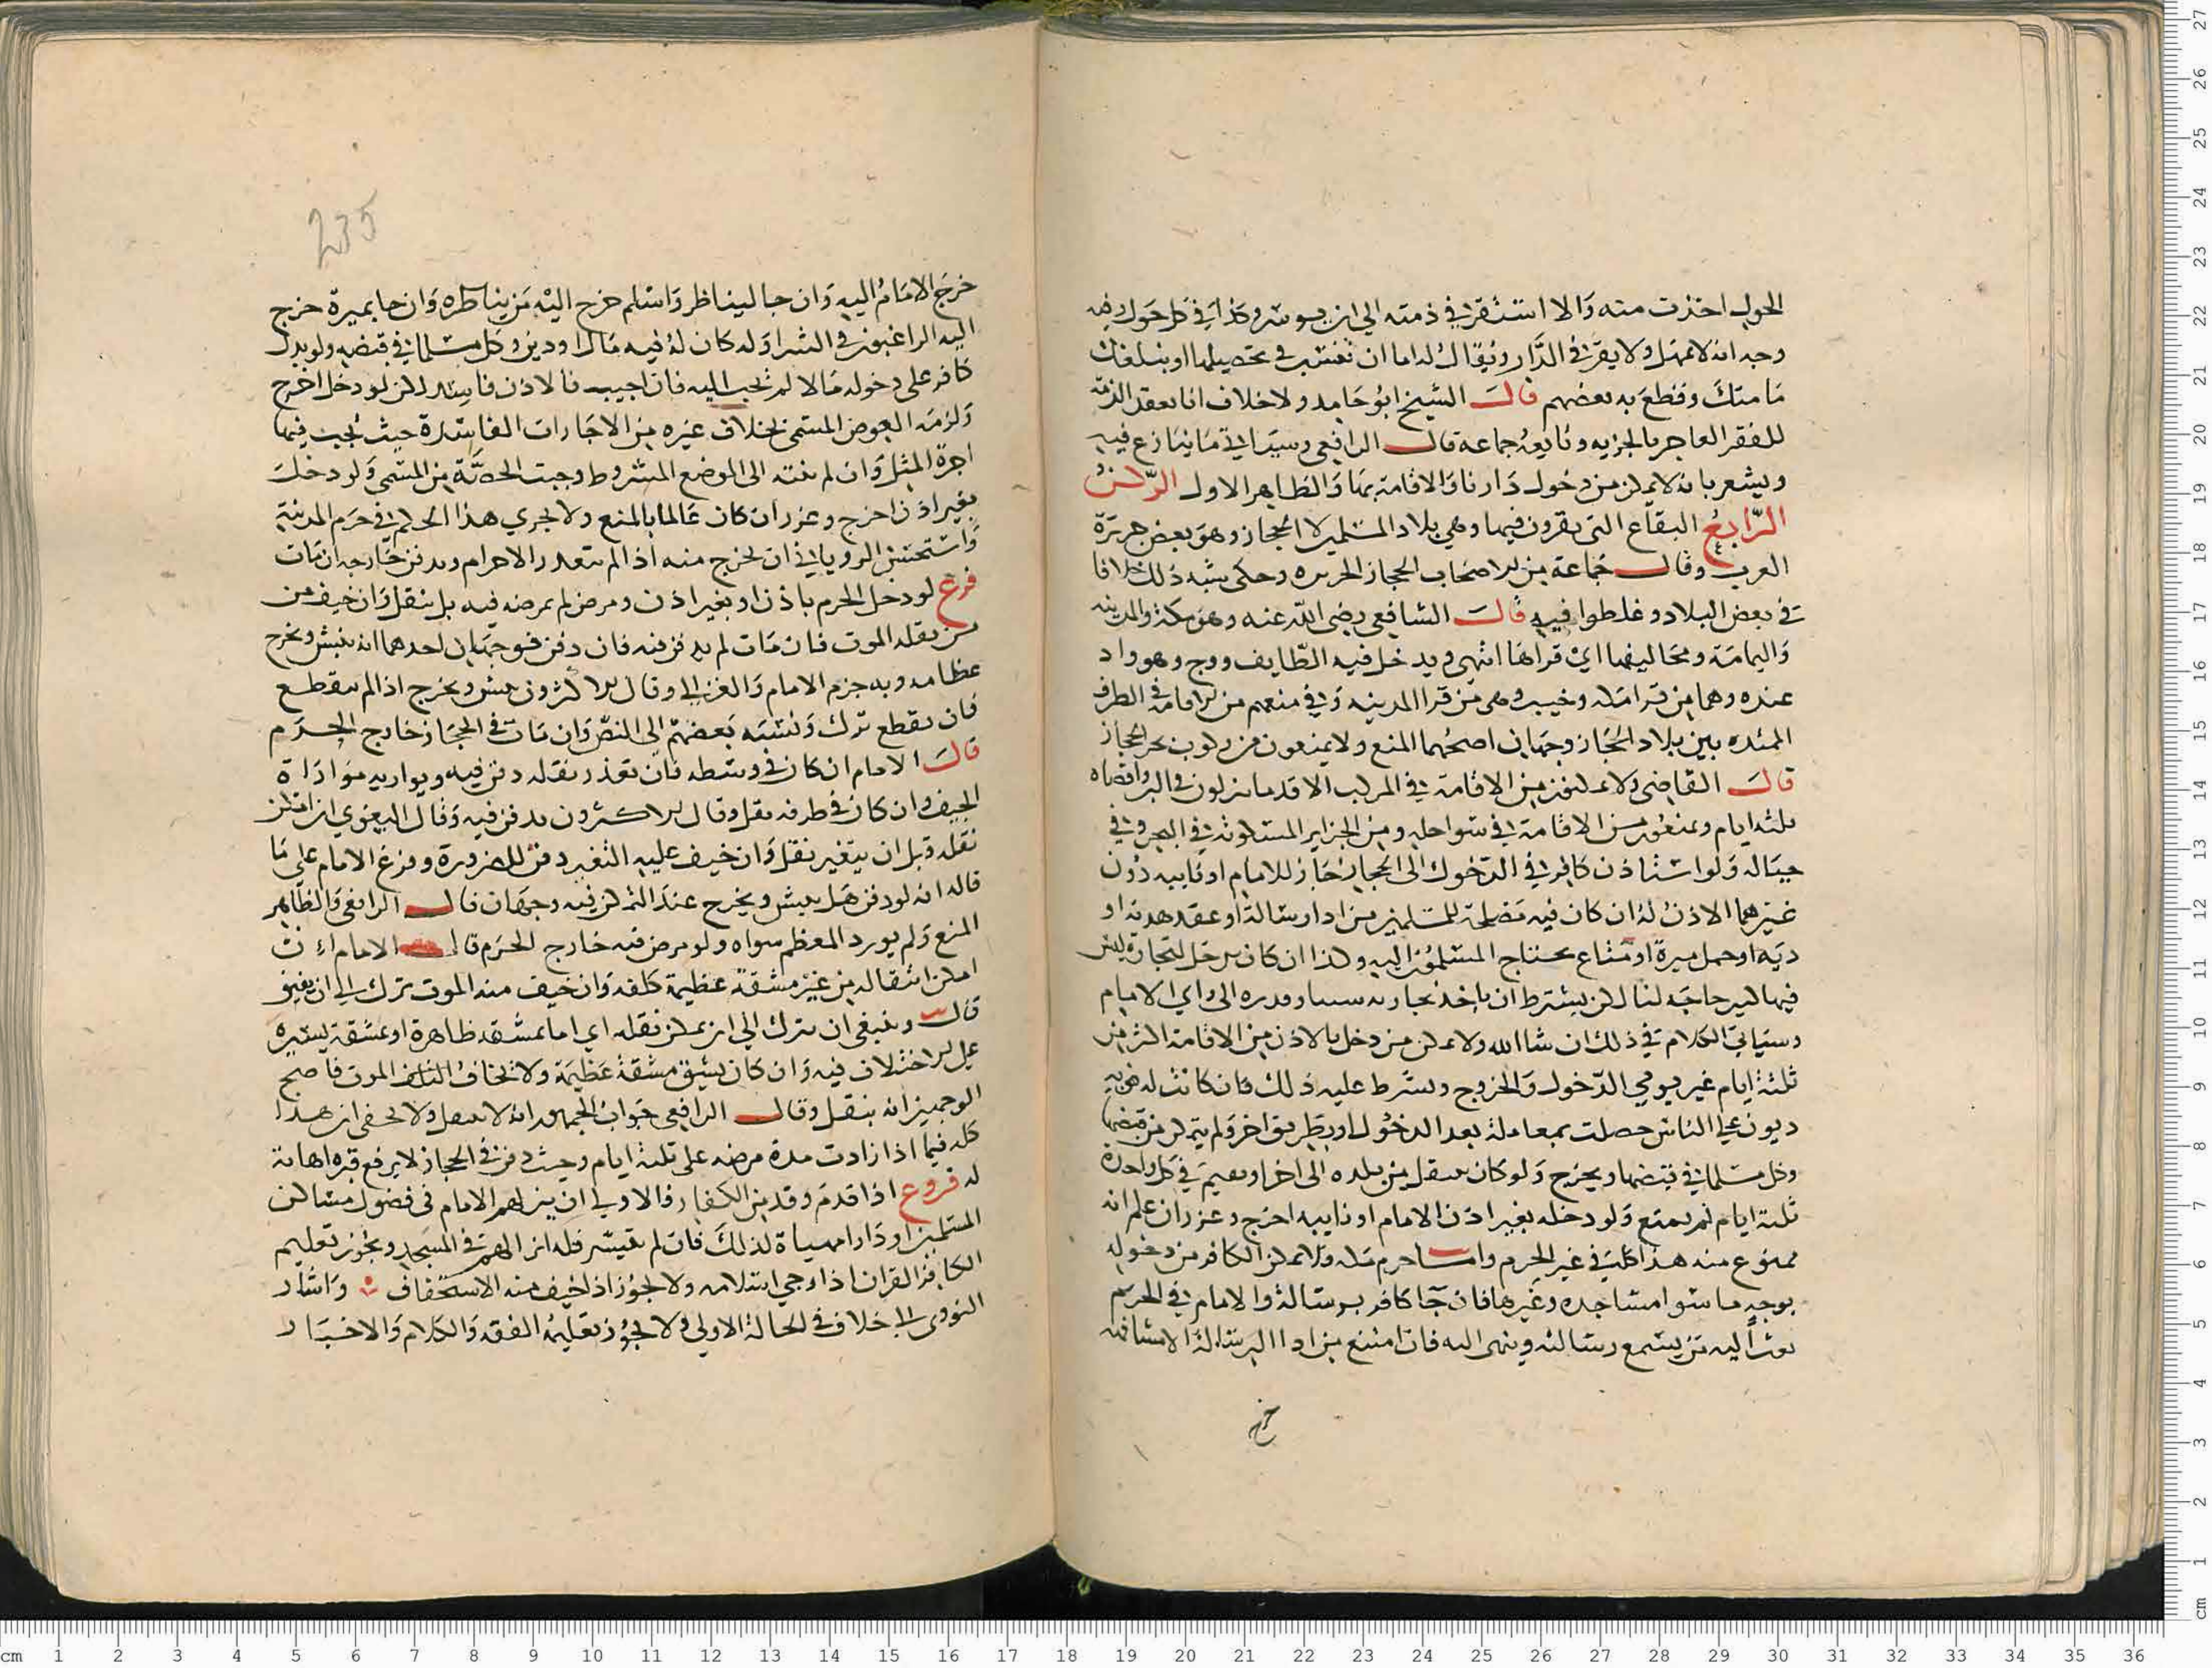 الحول اخذت منه والا استقر في ذمته الي ان يوسر وكذا في كل حول وفيه
وجه انه لا يمهل ولا يقر في الدار ويقال له اما ان تتسبب في تحصيلها او نبلغك
مامنك وقطع به بعضهم قال الشيخ ابو حامد ولا خلاف انا نعقد الذمة
للفقير العاجز بالجزيه وتابعه جماعه قال الرافعي وسياتي ما ينازع فيه
ويشعر بانه لا يمكن من دخول دارنا والاقامة بها والظاهر الاول الركن
الرابع البقاع التي يقرون فيها وهي بلاد المسلمين الا الحجاز وهو بعض جزيرة
العرب وقال جماعة من الاصحاب الحجاز الجزيره وحكي بنيه ذلك خلافا
في بعض البلاد وغلطوا فيه قال الشافعي رضي الله عنه وهو مكة والمدينه
واليمامة ومخاليفها اي قراها انتهي ويدخل فيه الطايف ووج وهو واد
عنده وهما من قرا مكه وخيبر وهي من قرا المدينه وفي منعهم من الاقامة في الطرق
الممتده بين بلاد الحجاز وجهان اصحهما المنع ولا يمنعون من ركوب بحر الحجاز
قال القاضي ولا يمكنون من الاقامة في المركب الا قدر ما ينزلون في البر واقصاه
ثلثه ايام ويمنعون من الاقامة في سواحله ومن الجزاير المسكونة في البحر وفي
جباله ولو استاذن كافر في الدخول الى الحجاز جاز للامام او نايبه دون
غيرهما الاذن له ان كان فيه مصلحة للمسلمين من اداء رسالة او عقد هدنة او
ذمة او حمل ميرة او متاع يحتاج المسلمون اليه وكذا ان كان يدخل لتجارة ليس
فيها كبير حاجه لنا لكن يشترط ان ياخذ من تجارته شيئا وقدره الى راي الامام
وسياتي الكلام في ذلك ان شا الله ولا يمكن من دخل بالاذن من الاقامة اكثر من
ثلثة ايام غير يومي الدخول والخروج ويشترط عليه ذلك فان كانت له فيه
ديون على الناس حصلت بمعاملة بعد الدخول او بطريق اخر ولم يتمكن من قبضها
وكل مسلما في قبضها ويخرج ولو كان ينتقل من بلده الى اخر او يقيم في كل واحدة
ثلثة ايام لم يمنع ولو دخله بغير اذن الامام او نايبه اخرج وعزر ان علم انه
ممنوع منه هذا كله في غير الحرم واما حرم مكه ولا يمكن الكافر من دخوله
بوجه ما سوا مساجده وغيرها فان جا كافر برسالة والامام في الحرم
بعث اليه من يسمع رسالته وينهي اليه فان امتنع من ادا الرسالة الا مشافهة
خرج
235
خرج الامام اليه وان جا ليناظر واسلم خرج اليه من يناظره وان جا بميرة خرج
اليه الراغبون في الشرا ولو كان له فيه مال او دين وكل مسلما في قبضه ولو بذل
كافر على دخوله مالا لم يجب اليه فان اجيب فالاذن فاسد لكن لو دخل اخرج
ولزمه العوض المسمى بخلاف غيره من الاجارات الفاسدة حيث يجب فيها
اجرة المثل وان لم ينته الى الموضع المشروط وجبت الحصة من المسمى ولو دخل
بغير اذن اخرج وعزر ان كان عالما بالمنع ولا يجري هذا الحكم في حرم المدينة
واستحسن الروياني ان يخرج منه اذا لم يتعذر الاخراج ويدفن خارجه ان مات
فرع لو دخل الحرم باذن او بغير اذن ومرض لم يمرض فيه بل ينقل وان خيف من
من نقله الموت فان مات لم يدفن فيه فان دفن فوجهان احدهما انه ينبش ويخرج
عظامه وبه جزم الامام والغزالي وقال الاكثرون ينبش ويخرج اذا لم يتقطع
فان تقطع ترك ونسبه بعضهم الى النص وان مات في الحجاز خارج الحرم
قال الامام ان كان في وسطه فان تعذر نقله دفن فيه ويواريه مواراة
الجيف وان كان في طرفه نقل وقال الاكثرون يدفن فيه وقال البغوي ان امكن
نقله قبل ان يتغير نقل وان خيف عليه التغير دفن للضرورة وفرع الامام على ما
قاله انه لو دفن هل ينبش ويخرج عند التمكن فيه وجهان قال الرافعي والظاهر
المنع ولم يورد المعظم سواه ولو مرض فيه خارج الحرم قال الامام ان
امكن انتقاله من غير مشقة عظيمة كلفه وان خيف منه الموت ترك الى ان يفيق
قال وينبغي ان يترك الي ان يمكن نقله اي اما بمشقه ظاهرة او بمشقة يسيره
على الاختلاف فيه وان كان يشق مشقة عظيمة ولا يخاف التلف الموت فاصح
الوجهين انه ينقل وقال الرافعي جواب الجمهور انه لا ينقل ولا يخفى ان هذا
كله فيما اذا زادت مدة مرضه على ثلثة ايام وحيث دفن في الحجاز لا يرفع قبره اهانة
له فروع اذا قدم وفد من الكفار فالاولى ان ينزلهم الامام في فضول مساكن
المسلمين او دارا مهياة لذلك فان لم يتيسر فله انزالهم في المسجد ويجوز تعليم
الكافر القران اذا رجي اسلامه ولا يجوز اذا خيف منه الاستخفاف واشار
النووي الى خلاف في الحالة الاولى ولا يجوز تعليمه الفقه والكلام والاخبار